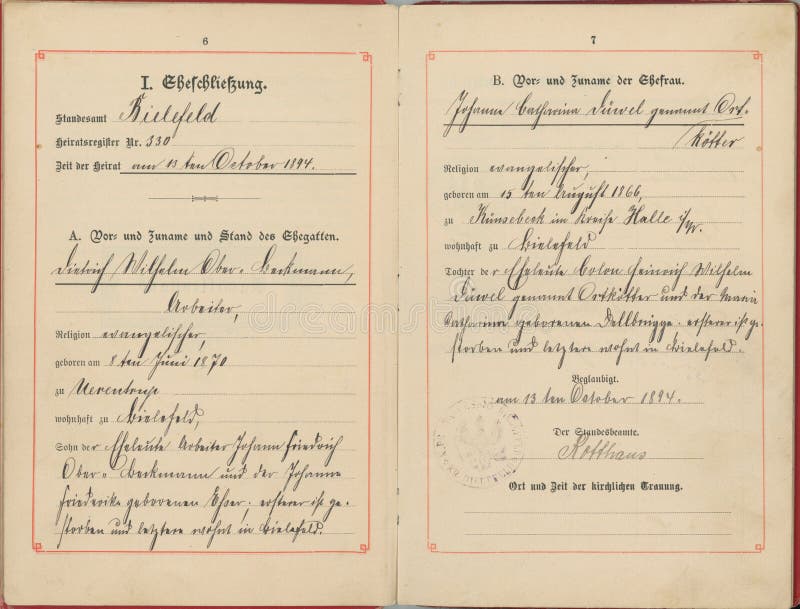 6
I. Eheschließung.
Standesamt Bielefeld
Heiratsregister Nr. 330
Zeit der Heirat am 13 ten October 1894.
A. Vor- und Zuname und Stand des Ehegatten.
Dietrich Wilhelm Ober-Beckmann,
Arbeiter,
Religion evangelischer,
geboren am 8 ten Juni 1870
zu Uerentrup
wohnhaft zu Bielefeld,
Sohn der Eheleute Arbeiter Johann Friedrich
Ober-Beckmann und der Johanne
Friederike geborenen ersterer ist ge-
storben und letztere wohnt in Bielefeld.
7
B. Vor- und Zuname der Ehefrau.
Johanne Catharina Düwel genannt Ort-
kötter
Religion evangelischer,
geboren am 15 ten August 1866,
zu Künsebeck im Kreise Halle i/W.
wohnhaft zu Bielefeld
Tochter der Eheleute Colon Heinrich Wilhelm
Düwel genannt Ortkötter und der Marie
Catharine geborenen Dellbrügge. ersterer ist ge-
storben und letztere wohnt in Bielefeld.
Beglaubigt.
am 13 ten October 1894.
Der Standesbeamte.
Kotthaus
Ort und Zeit der kirchlichen Trauung.
dreamstime